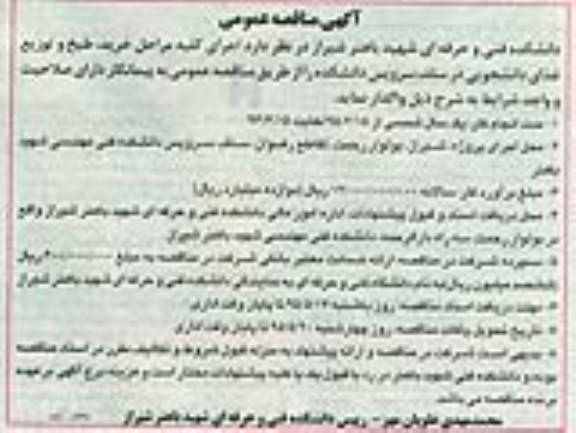 آگهی مناقصه عمومی
دانشکده فنی و حرفه ای شهید باهنر شیراز در نظر دارد اجرای کلیه مراحل خرید، طبخ و توزیع
غذای دانشجویی در سلف سرویس دانشکده را از طریق مناقصه عمومی به پیمانکار دارای صلاحیت
و واجد شرایط به شرح ذیل واگذار نماید.
۱- مدت انجام کار: یک سال شمسی از
۲- محل اجرای پروژه: شیراز، بولوار رحمت، تقاطع رضوان، سلف سرویس دانشکده فنی مهندسی شهید
باهنر
۳- مبلغ برآورد کار: سالانه ریال (دوازده میلیارد ریال)
۴- محل دریافت اسناد و قبول پیشنهادات: اداره امور مالی دانشکده فنی و حرفه ای شهید باهنر شیراز واقع
در بولوار رحمت سه راه دانشکده فنی مهندسی شهید باهنر شیراز
۵- سپرده شرکت در مناقصه: ارائه ضمانت معتبر بانکی شرکت در مناقصه به مبلغ ریال
میلیون ریال به نام دانشگاه فنی و حرفه ای به نمایندگی دانشکده فنی و حرفه ای شهید باهنر شیراز
۶- مهلت دریافت اسناد مناقصه: روز تا پایان وقت اداری
۷- تاریخ تحویل پاکات مناقصه: روز چهارشنبه تا پایان وقت اداری
۸- بدیهی است شرکت در مناقصه و ارائه پیشنهاد به منزله قبول شروط و تکالیف مقرر در اسناد مناقصه
بوده و دانشکده فنی شهید باهنر در رد یا قبول یک یا کلیه پیشنهادات مختار است و هزینه درج آگهی بر عهده
برنده مناقصه می باشد.
محمدمهدی علویان مهر - رییس دانشکده فنی و حرفه ای شهید باهنر شیراز